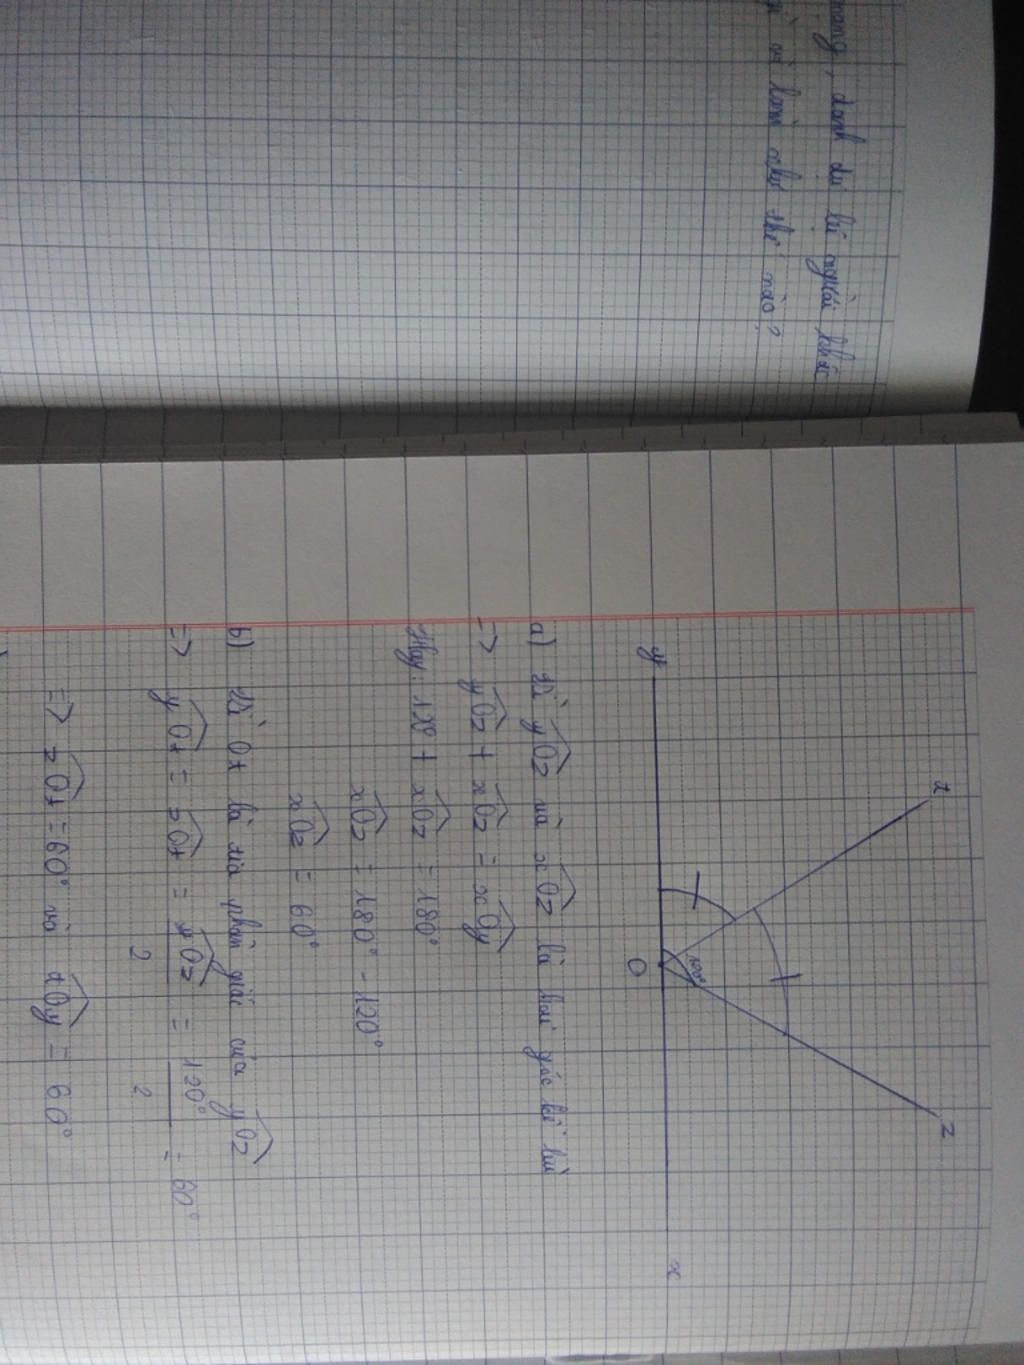 mạng, danh dự bị người khác
vì làm như thế nào?
t
z
120°
y
O
x
a) Vì yOz và xOz là hai góc kề bù
=> yOz + xOz = xOy
Hay: 120 + xOz = 180°
xOz = 180° - 120°
xOz = 60°
b) Vì Ot là tia phân giác của yOz
=> yOt = zOt = yOz/2 = 120°/2 = 60°
=> zOt = 60° và tOy = 60°